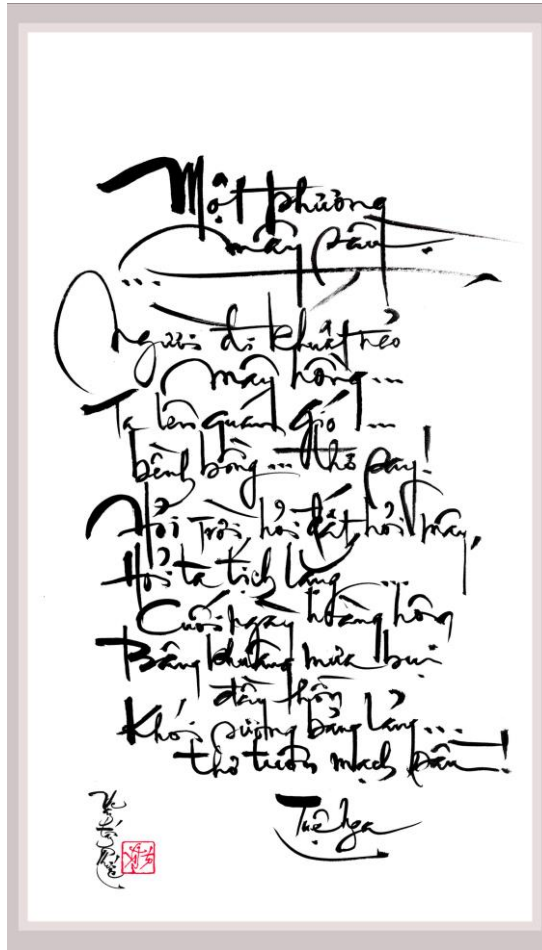 Một phương
mây sầu.
...
Người đi khuất nẻo
mây hồng...
Ta lên quán gió...
bềnh bồng... thơ say!
Hỏi Trời, hỏi đất, hỏi mây,
Hỏi ta tịch lặng ...
Cuối ngày hoàng hôn
Bâng khuâng mưa bụi
đầy hồn
Khói sương bảng lảng...
thơ tuôn mạch sầu!
Tuệ Nga